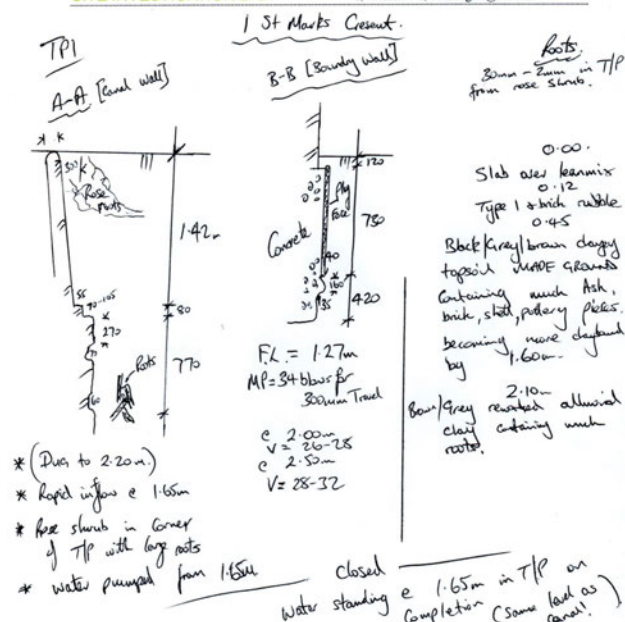 1 St Marks Cresent.
TP1
A-A [Canal wall]
* K
300 K
Rose
Roots
1.42m
55
70-105
80
270
70
770
60
Roots
* (Dug to 2.20m.)
* Rapid inflow @ 1.65m
* Rose shrub in corner
of T/P with large roots
* water pumped from 1.65m
B-B [Boundry wall]
120
Ply
Face
730
Concrete
40
160
35
420
F.L. = 1.27m
MP = 34 blows for
300mm Travel
@ 2.00m
V = 26-28
@ 2.50m
V = 28-32
Roots.
30mm - 2mm in T/P
from rose shrub.
0.00.
Slab over leanmix
0.12
Type 1 & brick rubble
0.45
Black/Grey/brown clayey
topsoil MADE GROUND
Containing much Ash,
brick, shell, pottery pieces.
becoming more clay bound
by 1.60m.
2.10m
Brown/Grey reworked alluvial
clay containing much
roots.
closed
Water standing @ 1.65m in T/P on
Completion (Same level as
canal!)